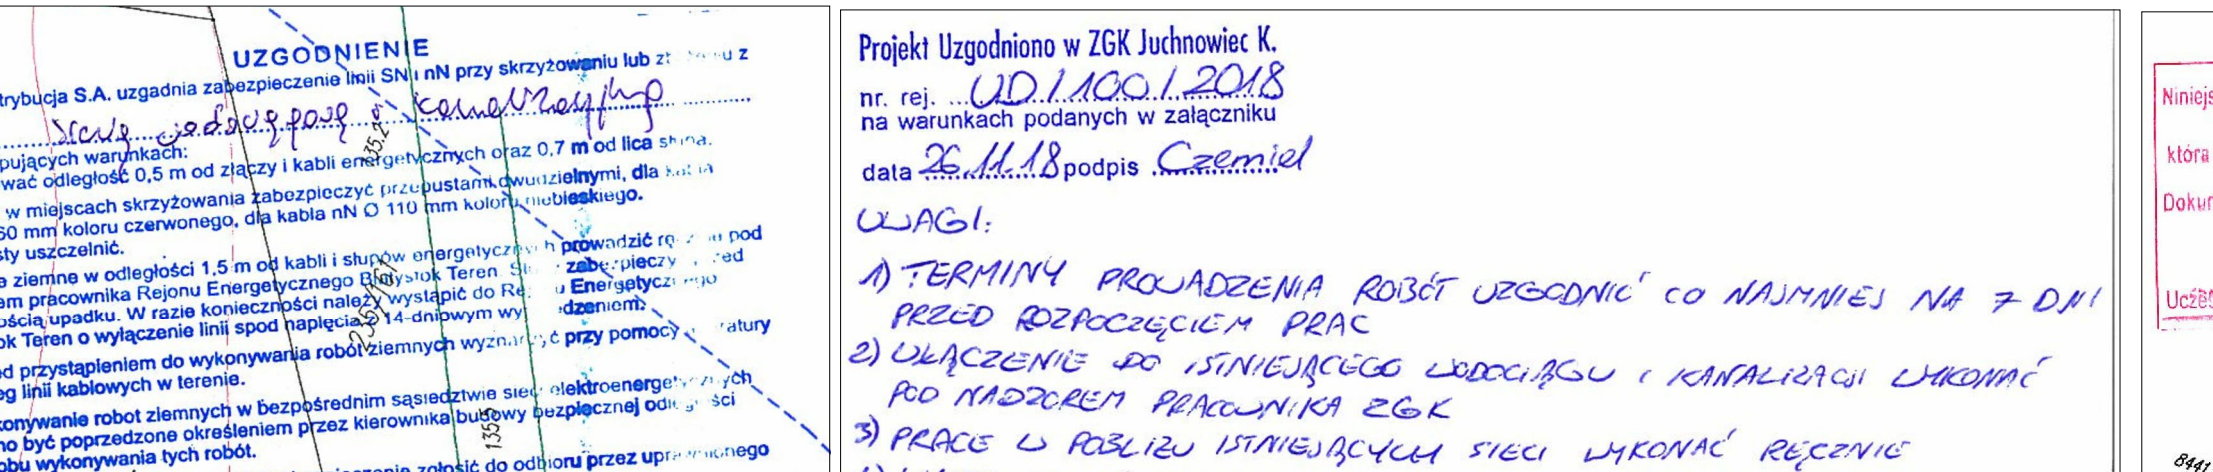 UZGODNIENIE
trybucja S.A. uzgadnia zabezpieczenie linii SN i nN przy skrzyżowaniu lub z
kanalizacyjną
pujących warunkach:
wać odległość 0,5 m od złączy i kabli energetycznych oraz 0,7 m od lica słupa.
w miejscach skrzyżowania zabezpieczyć przepustami dwudzielnymi, dla kabla
60 mm koloru czerwonego, dla kabla nN Ø 110 mm koloru niebieskiego.
sty uszczelnić.
e ziemne w odległości 1,5 m od kabli i słupów energetycznych prowadzić pod
em pracownika Rejonu Energetycznego Białystok Teren.
ością upadku. W razie konieczności należy wystąpić do Energetycznego
ok Teren o wyłączenie linii spod napięcia 14-dniowym
ed przystąpieniem do wykonywania robót ziemnych wyznaczyć przy pomocy
eg linii kablowych w terenie.
konywanie robot ziemnych w bezpośrednim sąsiedztwie sieci elektroenergetycznych
no być poprzedzone określeniem przez kierownika budowy bezpiecznej odległości
obu wykonywania tych robót.
zgłosić do odbioru przez uprawnionego
235/161
135.5
Projekt Uzgodniono w ZGK Juchnowiec K.
nr. rej. UD/100/2018
na warunkach podanych w załączniku
data 26.11.18 podpis Czemiel
UWAGI:
1) TERMINY PROWADZENIA ROBÓT UZGODNIĆ CO NAJMNIEJ NA 7 DNI
PRZED ROZPOCZĘCIEM PRAC
2) WŁĄCZENIE DO ISTNIEJĄCEGO WODOCIĄGU I KANALIZACJI WYKONAĆ
POD NADZOREM PRACOWNIKA ZGK
3) PRACE W POBLIŻU ISTNIEJĄCYCH SIECI WYKONAĆ RĘCZNIE
Niniejs
która
Dokum
8441